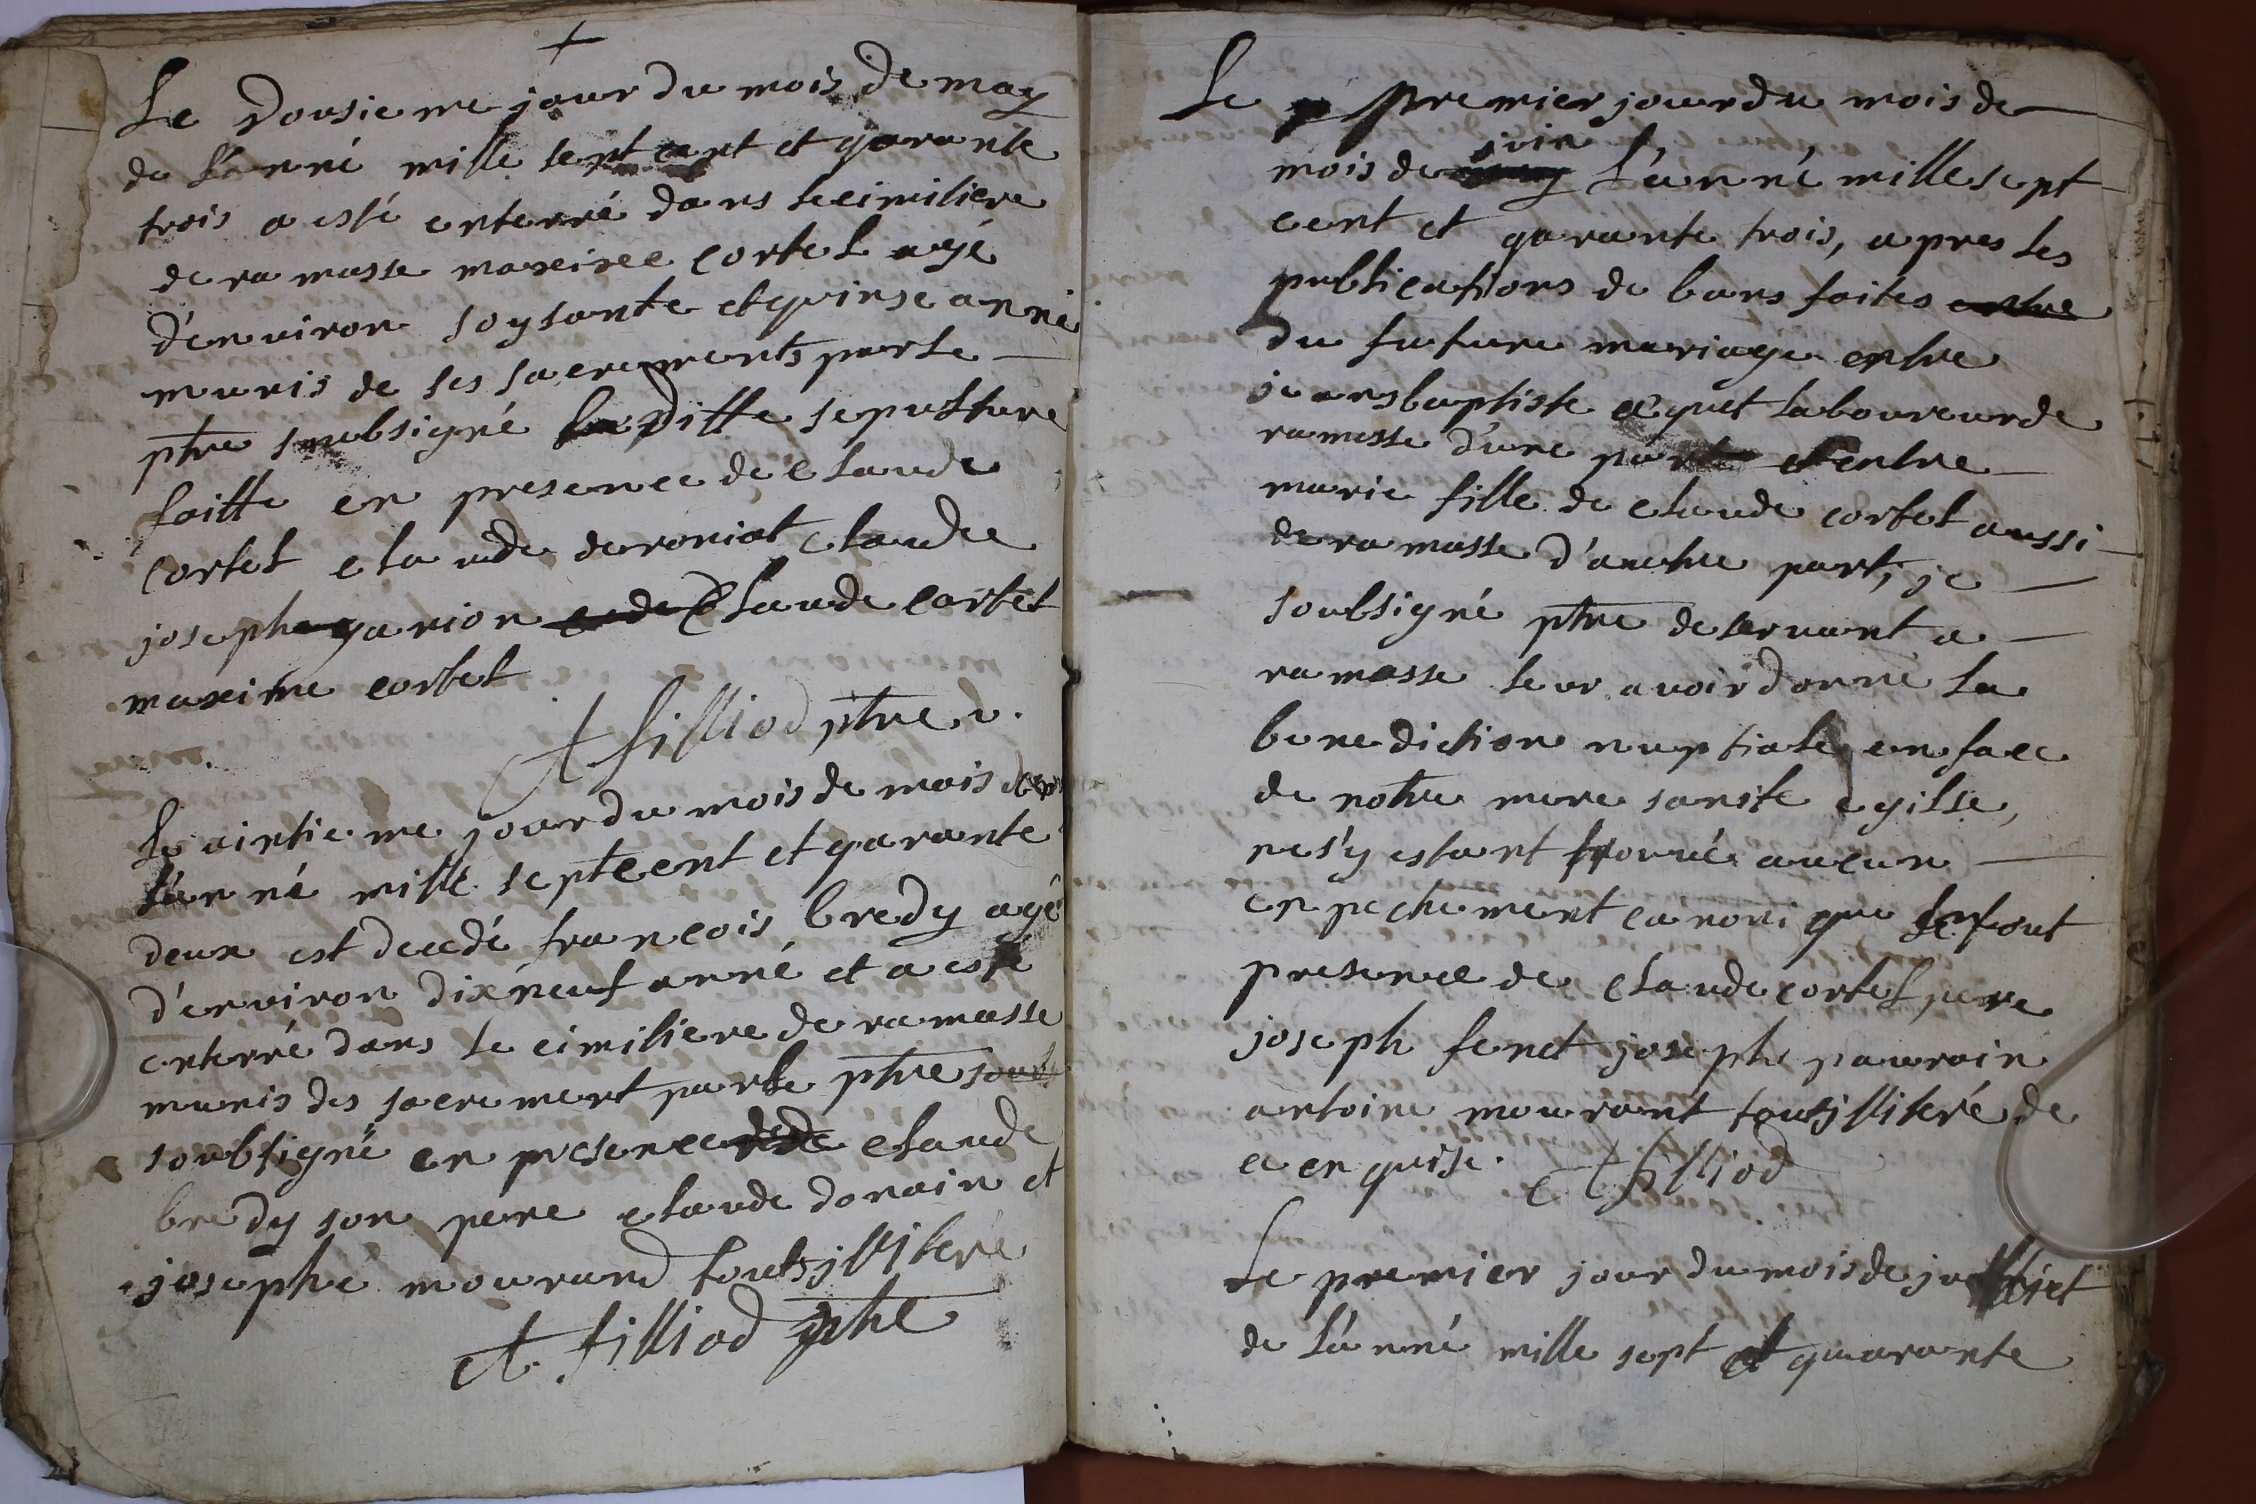 Le Dousieme jour du mois de may
de L'anné mille sept cent et qarante
trois a esté enterré dans le cimitiere
de ramasse maxime cortet agé
d'environ soysante et quinse anné
munis de ses sacrements par le
ptre soubsigné la ditte sepulture
faitte en presence de claude
cortet claude deroniat claude
joseph garion claude cortet
maxime cortet
A filliod ptre v.
Le vintieme jour du mois de mais de
L'anné mille sept cent et qarante
deux est decedé francois bredy agé
d'environ dix neuf anné et a esté
enterré dans le cimitiere de ramasse
munis des sacrement par le ptre
soubsigné en presence claude
bredy son pere claude donain et
josephé mourand touts jlliteré
A. filliod ptre
Le premier jour du mois de
mois de juin L'anné mille sept
cent et qarante trois, apres les
publications de bans faites entre
du future mariage entre
jeansbaptiste laboureur de
ramasse d'une part et entre
marie fille de claude cortet aussi
de ramasse d'autre part, je
soubsigné ptre deservant a
ramasse leur avoir donné la
benediction nuptiale en face
de notre mere sainte egilse,
nes'y estant trouvé aucun
enpechement canoni que
presence de claude cortet pere
joseph feret joseph pauvain
antoine mourant touts jlliteré de
ce enquise. A filliod
Le premier jour du mois de juilliet
de L'anné mille sept et quarante